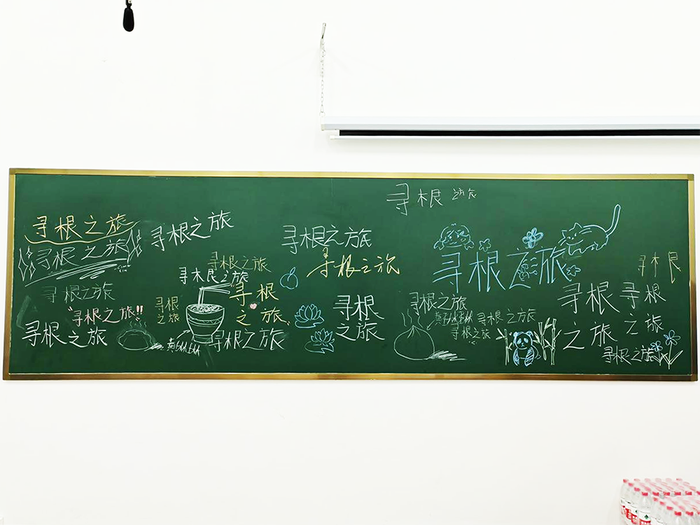 寻根
寻根之旅
寻根之旅
寻根之旅
寻根之旅
寻根之旅
寻根之旅
寻根之旅
寻根之旅
寻木艮之旅
寻根
之旅
寻根
之旅
"寻根之旅"!!
寻根之旅
寻根之旅
寻根
之旅
寻根之旅
寻根之旅
寻根
之旅
寻根
之旅
寻木艮
寻根之旅